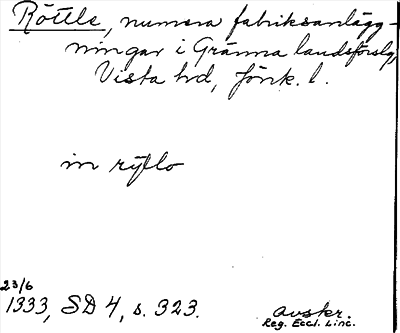 Röttle, numera fabriksanlägg-
ningar i Gränna landsförslg,
Vista hd, Jönk. l.
in rytlo
23/6
1333, SD 4, s. 323.
avskr.
Reg. Eccl. Linc.